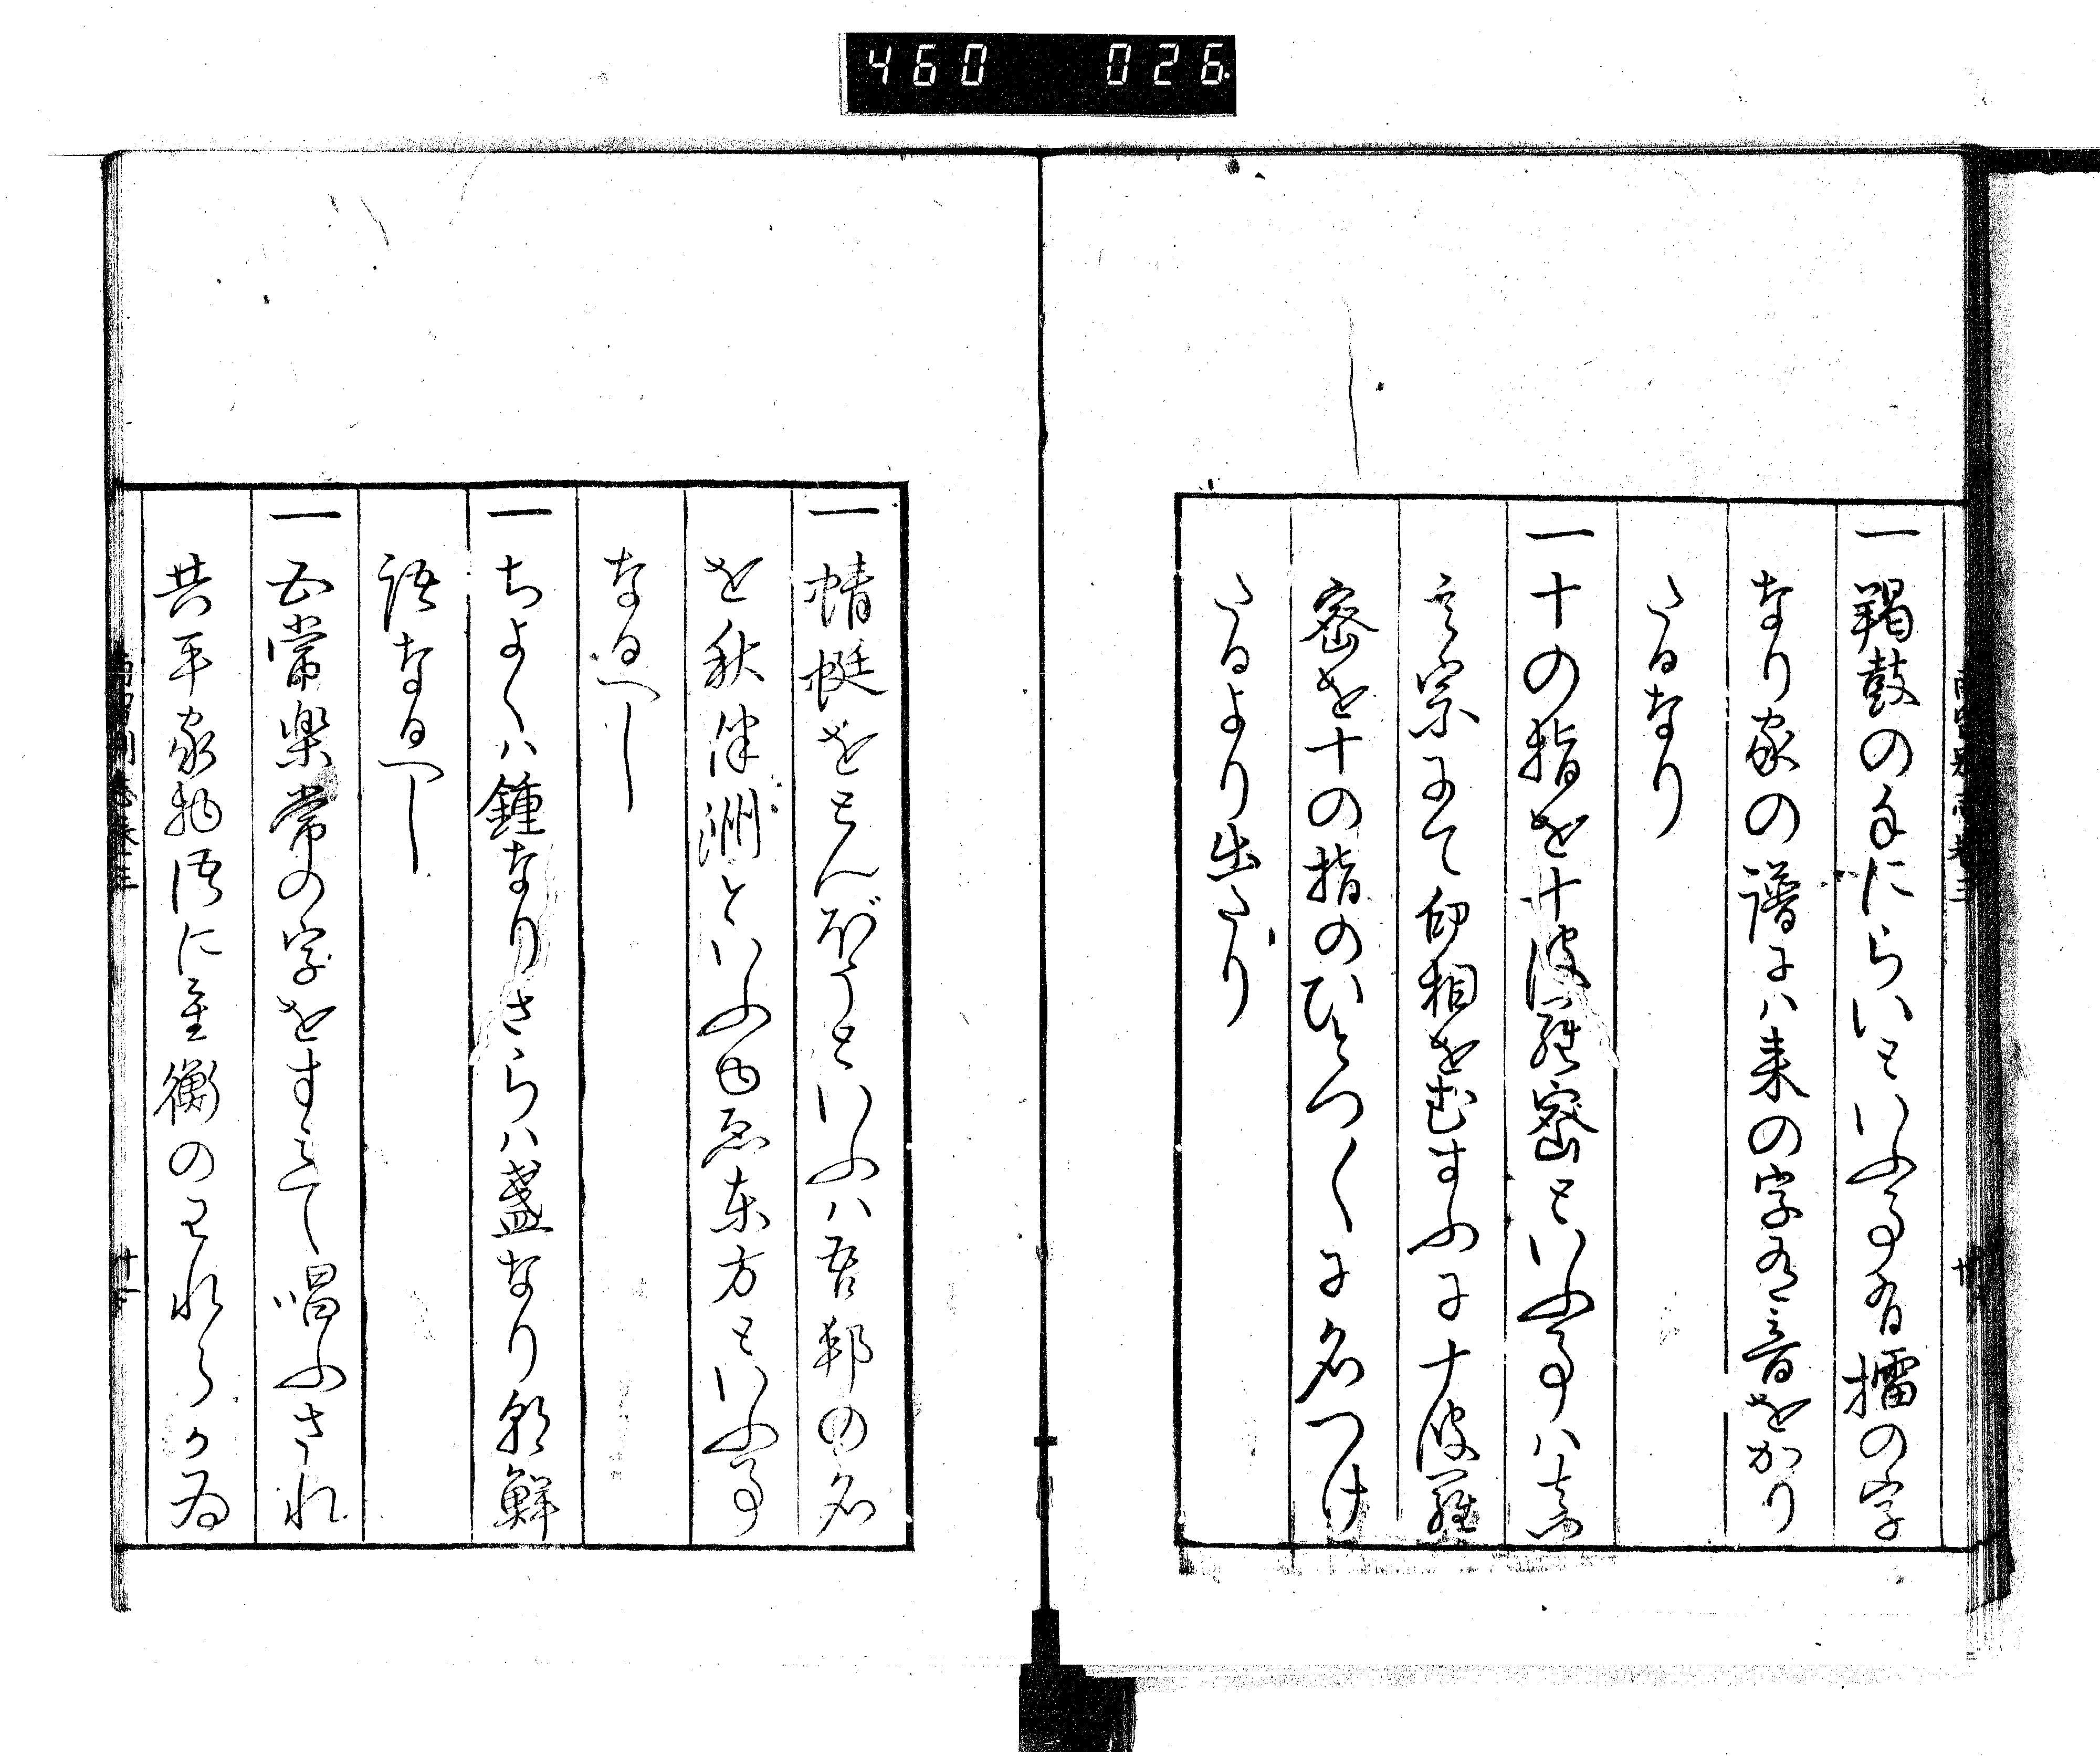 460 026
一羯鼓の手にらいといふ事有擂の字
なり家の譜には来の字有音をかり
たるなり
一十の指を十波羅密といふ事ハ真
言宗にて印相をむすふに十波羅
密を十の指のひとつ〱に名つけ
たるより出たり
一蜻蜓をとんぼうといふハ吾邦の名
を秋津洲といふゆゑ東方といふ事
なるへし
一ちよくハ鍾なりさらハ盞なり朝鮮
語なるへし
一五常楽常の字をすミて唱ふされ
共平家物語に重衡のわれらか為